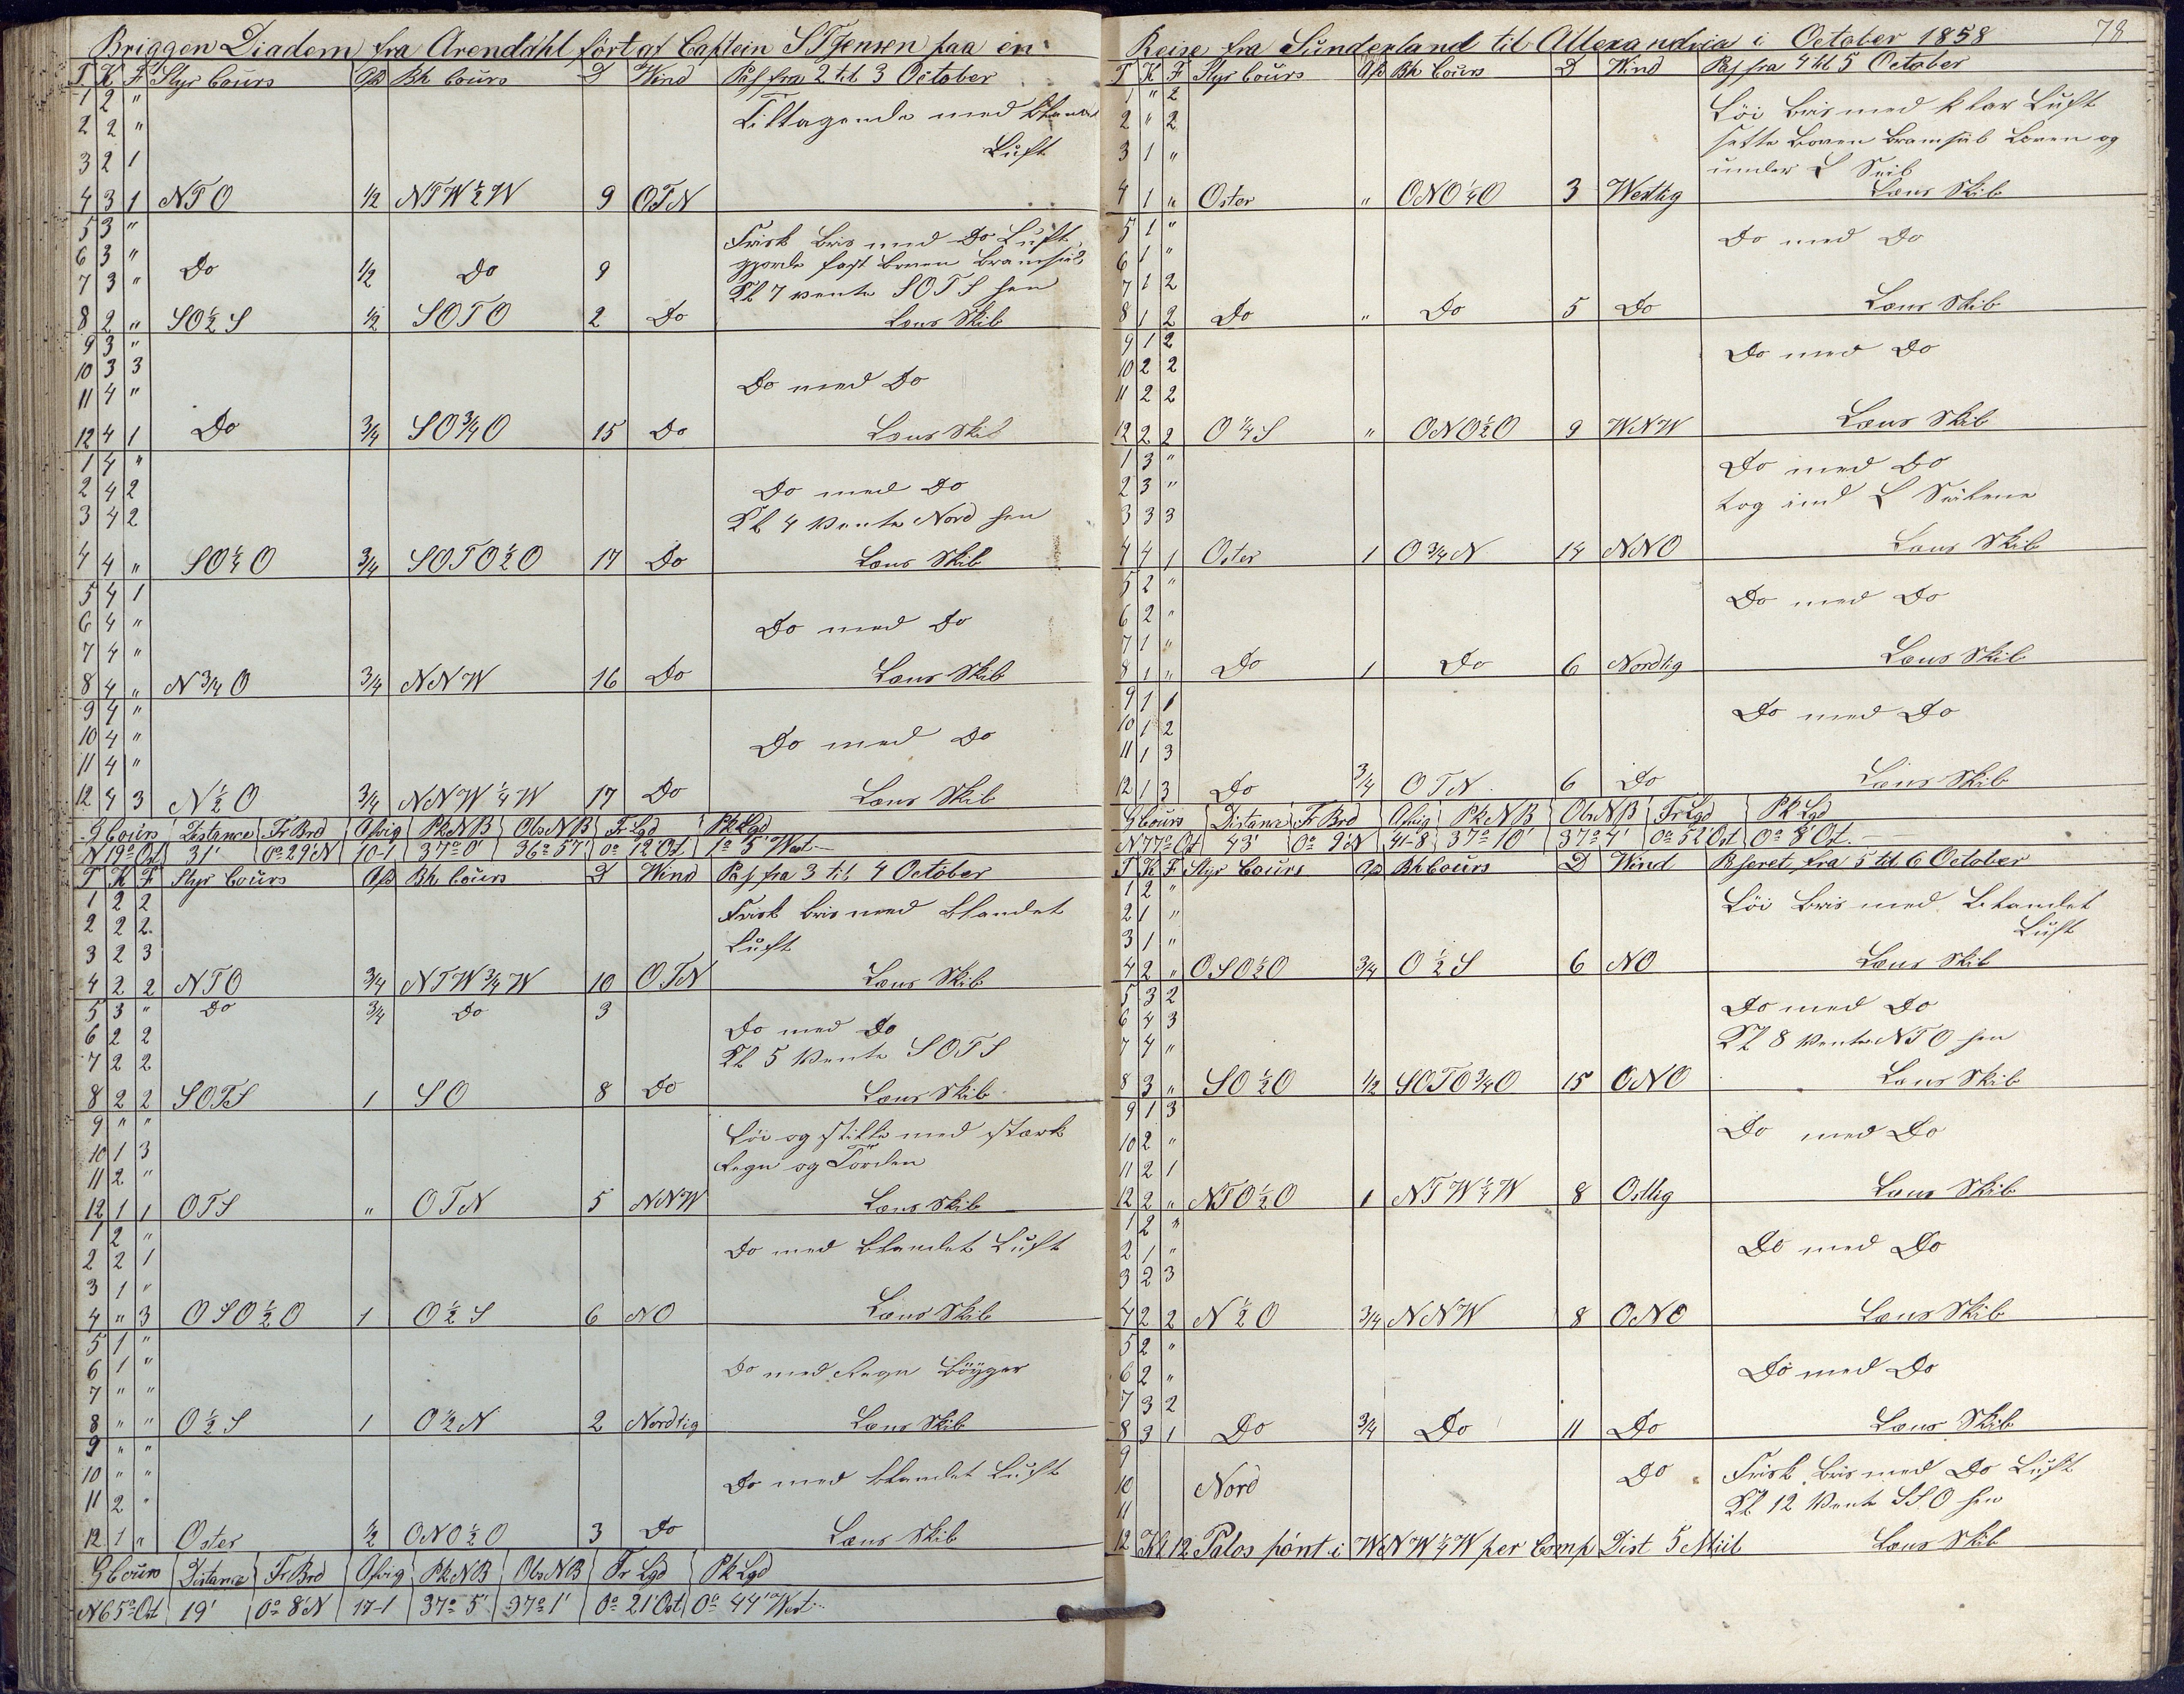 Briggen Diadem fra Arendahl fört af Captein S T Jensen paa en
T K F Styr Cours Afd Bh Cours D Wind Pas fra 2 til 3 October
1 2 "
2 2 " Tiltagende med
3 2 1 Luft
4 3 1 NTO 1/2 NTW 1/2 W 9 OTN
5 3 " Frisk Bris med Do Luft
6 3 " gjorde fast Boven Bramseil
7 3 " Do 1/2 Do 9 Kl 7 vente SOTS hen
8 2 " SO 1/2 S 1/2 SOTO 2 Do Lens Skib
9 3 "
10 3 3 Do med Do
11 4 "
12 4 1 Do 3/4 SO 3/4 O 15 Do Lens Skib
1 4 "
2 4 2 Do med Do
3 4 2 Kl 4 Vente Nord hen
4 4 " SO 1/4 O 3/4 SOTO 1/2 O 17 Do Lens Skib
5 4 1
6 4 " Do med Do
7 4 "
8 4 " N 3/4 O 3/4 NNW 16 Do Lens Skib
9 4 "
10 4 " Do med Do
11 4 "
12 4 3 N 1/2 O 3/4 NNW 1/4 W 17 Do Lens Skib
G Cours Distance Fr Brd Afvig Pk N B Obs N B Fr Lgd Pk Lgd
N 19° Ost 31' 0° 29' N 10-1 37° 0' 36° 57' 0° 12' Ost 1° 5' West
T K F Styr Cours Afd Bh Cours D Wind Pas fra 3 til 4 October
1 2 2 Frisk Bris med Blandet
2 2 2 Luft
3 2 3
4 2 2 NTO 3/4 NTW 3/4 W 10 OTN Lens Skib
5 3 " Do 3/4 Do 3
6 2 2 Do med Do
7 2 2 Kl 5 Vente SOTS
8 2 2 SOTS 1 SO 8 Do Lens Skib
9 " " Löi og stille med stærk
10 1 3 Regn og Torden
11 2 "
12 1 1 OTS " OTN 5 NNW Lens Skib
1 2 "
2 2 1 Do med Blandet Luft
3 1 "
4 " 3 OSO 1/2 O 1 O 1/2 S 6 NO Lens Skib
5 1 "
6 1 " Do med Regn Böyger
7 " "
8 " " O 1/2 S 1 O 1/2 N 2 Nordlig Lens Skib
9 " "
10 " " Do med blandet Luft
11 2 "
12 1 " Oster 1/2 ONO 1/2 O 3 Do Lens Skib
G Cours Distance Fr Brd Afvig Pk N B Obs N B Fr Lgd Pk Lgd
N 65° Ost 19' 0° 8' N 17-1 37° 5' 37° 1' 0° 21' Ost 0° 44' West
Reise fra Sunderland til Allexandria i October 1858 78
T K F Styr Cours Afd Bh Cours D Wind Pas fra 4 til 5 October
1 " 2 Löi Bris med klar Luft
2 " 2 satte Boven Bramseil Boven og
3 1 " under L Seil
4 1 " Oster " ONO 1/4 O 3 Westlig Lens Skib
5 1 " Do med Do
6 1 "
7 1 2
8 1 2 Do " Do 5 Do Lens Skib
9 1 2 Do med Do
10 2 2
11 2 2
12 2 2 O 1/4 S " ONO 1/2 O 9 WNW Lens Skib
1 3 " Do med Do
2 3 " tog ind L Seilene
3 3 3
4 4 1 Oster 1 O 3/4 N 14 NNO Lens Skib
5 2 " Do med Do
6 2 "
7 1 "
8 1 " Do 1 Do 6 Nordlig Lens Skib
9 1 1
10 1 2 Do med Do
11 1 3
12 1 3 Do 3/4 OTN 6 Do Lens Skib
G Cours Distance Fr Brd Afvig Pk N B Obs N B Fr Lgd Pk Lgd
N 77° Ost 43' 0° 9' N 41-8 37° 10' 37° 4' 0° 52' Ost 0° 8' Ost
T K F Styr Cours Afd Bh Cours D Wind Paseret fra 5 til 6 October
1 2 " Löi Bris med Blandet
2 1 " Luft
3 1 "
4 2 " OSO 1/2 O 3/4 O 1/2 S 6 NO Lens Skib
5 3 2 Do med Do
6 4 3 Kl 8 Vente NTO hen
7 4 "
8 3 " SO 1/2 O 1/2 SOTO 3/4 O 15 ONO Lens Skib
9 1 3
10 2 " Do med Do
11 2 1
12 2 " NTO 1/2 O 1 NTW 1/4 W 8 Ostlig Lens Skib
1 2 "
2 1 " Do med Do
3 2 3
4 2 2 N 1/2 O 3/4 NNW 8 ONO Lens Skib
5 2 "
6 2 " Do med Do
7 3 2
8 3 1 Do 3/4 Do 11 Do Lens Skib
9
10 Nord Do Frisk Bris med Do Luft
11 Kl 12 Vente SSO hen
12 Kl 12 Palos pönt i WNW 1/4 W per Comp Dist 5 Miil Lens Skib